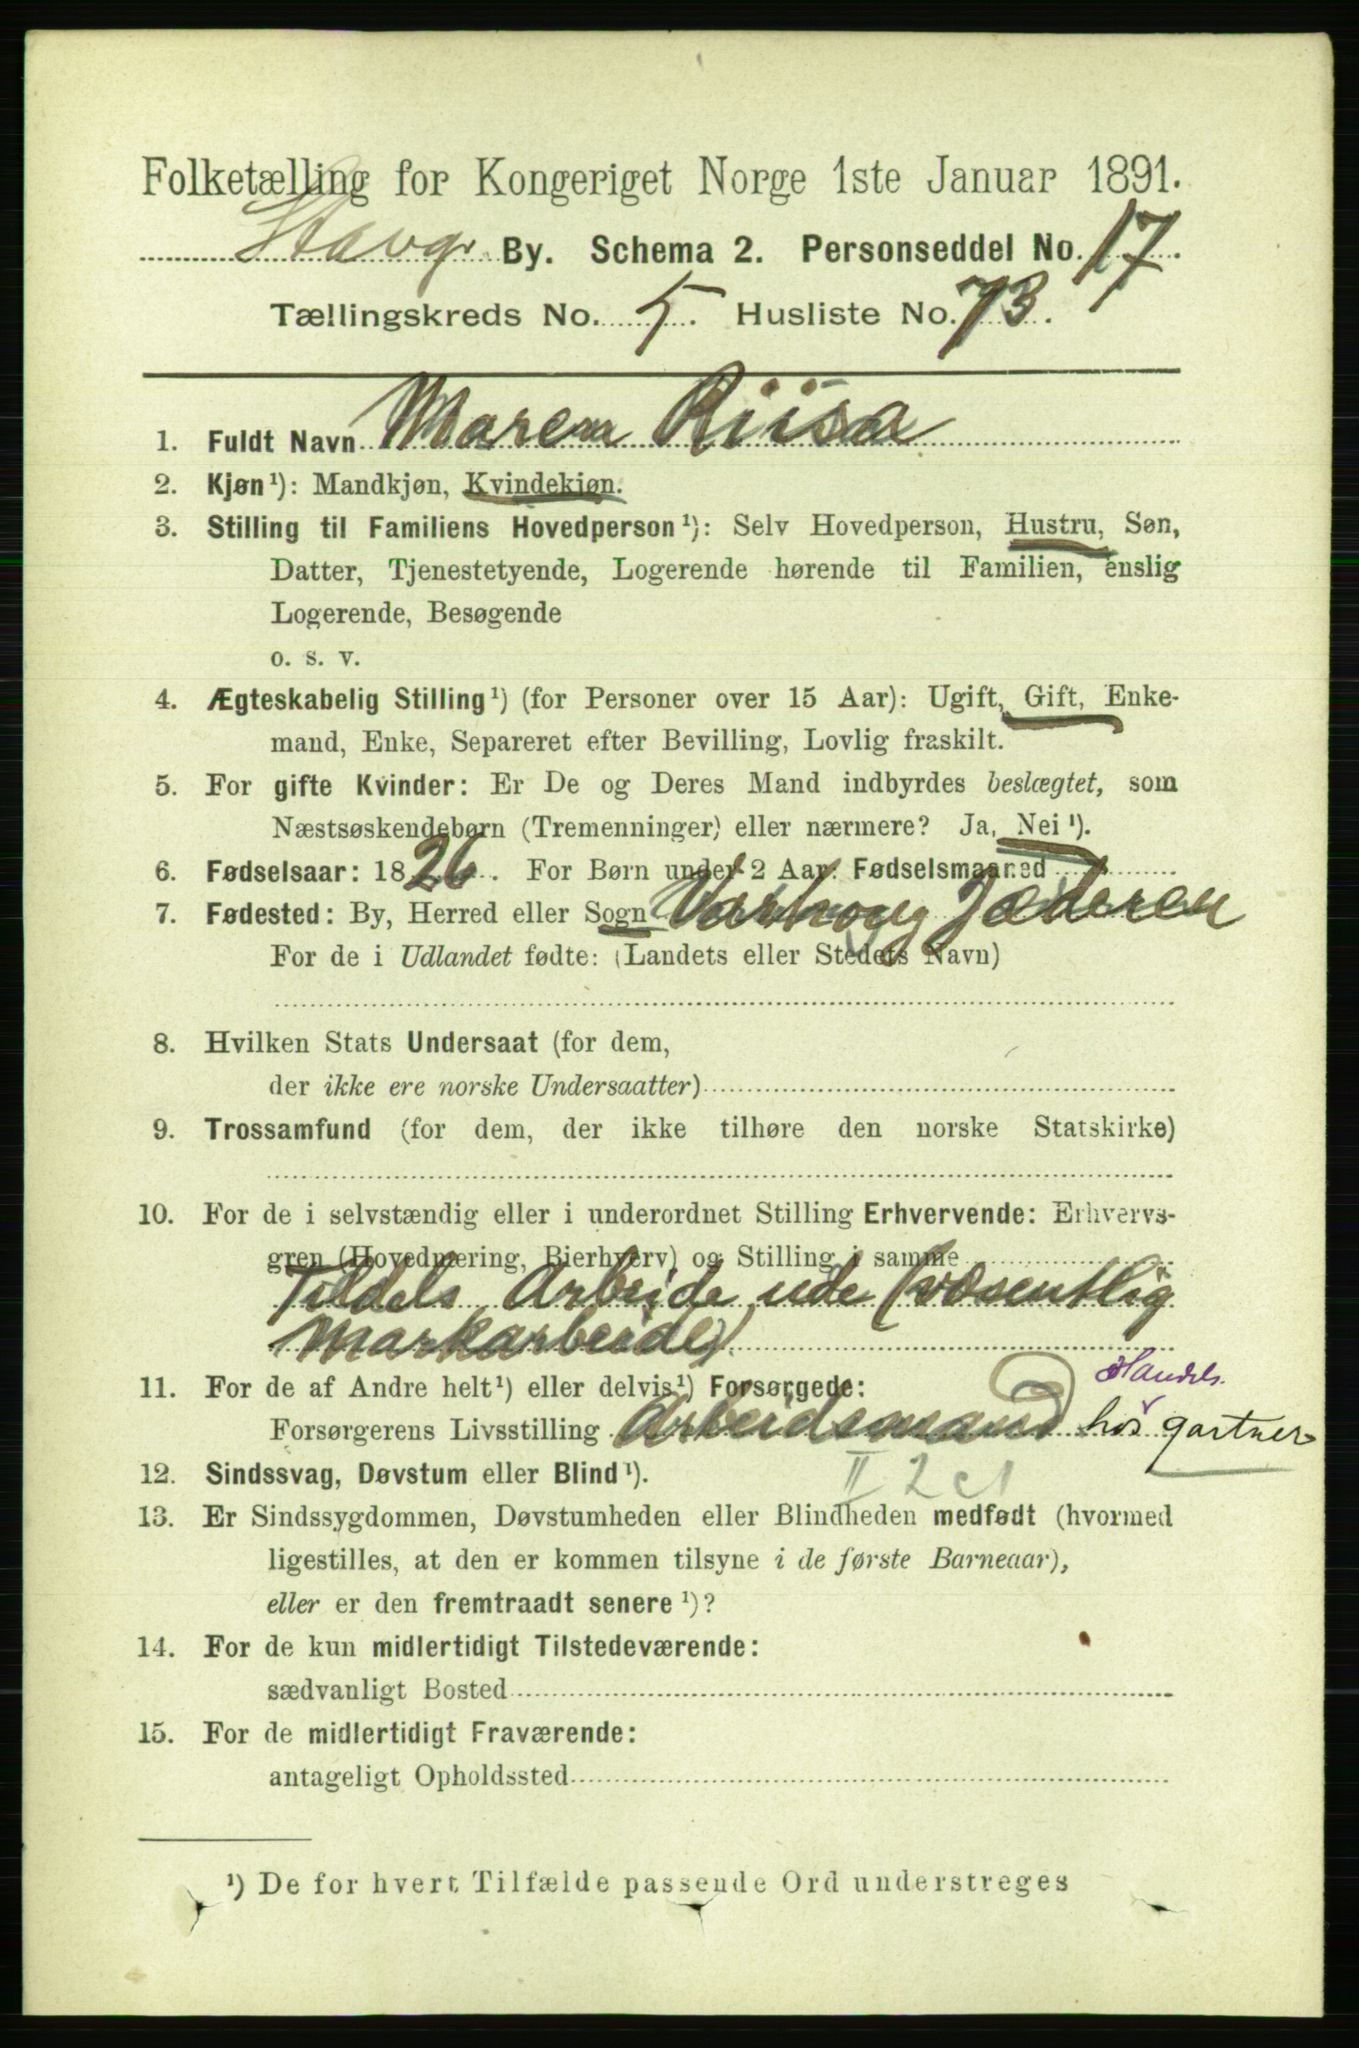 Folketælling for Kongeriget Norge 1ste Januar 1891.
Stavgr By. Schema 2. Personseddel No. 17.
Tællingskreds No. 5. Husliste No. 73.
1. Fuldt Navn Maren Riisa
2. Kjøn¹): Mandkjøn, Kvindekjøn.
3. Stilling til Familiens Hovedperson¹): Selv Hovedperson, Hustru, Søn,
Datter, Tjenestetyende, Logerende hørende til Familien, enslig
Logerende, Besøgende
o. s. v.
4. Ægteskabelig Stilling¹) (for Personer over 15 Aar): Ugift, Gift, Enke-
mand, Enke, Separeret efter Bevilling, Lovlig fraskilt.
5. For gifte Kvinder: Er De og Deres Mand indbyrdes beslægtet, som
Næstsøskendebørn (Tremenninger) eller nærmere? Ja, Nei¹).
6. Fødselsaar: 1826. For Børn under 2 Aar: Fødselsmaaned
7. Fødested: By, Herred eller Sogn Varhoug Jæderen
For de i Udlandet fødte: (Landets eller Stedets Navn)
8. Hvilken Stats Undersaat (for dem,
der ikke ere norske Undersaatter)
9. Trossamfund (for dem, der ikke tilhøre den norske Statskirke)
10. For de i selvstændig eller i underordnet Stilling Erhvervende: Erhvervs-
gren (Hovednæring, Bierhverv) og Stilling i samme
Tildels Arbeide ude (væsentlig
Markarbeide)
11. For de af Andre helt¹) eller delvis¹) Forsørgede: Handels.
Forsørgerens Livsstilling Arbeidsmand hos gartner
12. Sindssvag, Døvstum eller Blind¹).
13. Er Sindssygdommen, Døvstumheden eller Blindheden medfødt (hvormed
ligestilles, at den er kommen tilsyne i de første Barneaar),
eller er den fremtraadt senere¹)?
14. For de kun midlertidigt Tilstedeværende:
sædvanligt Bosted
15. For de midlertidigt Fraværende:
antageligt Opholdssted
¹) De for hvert Tilfælde passende Ord understreges